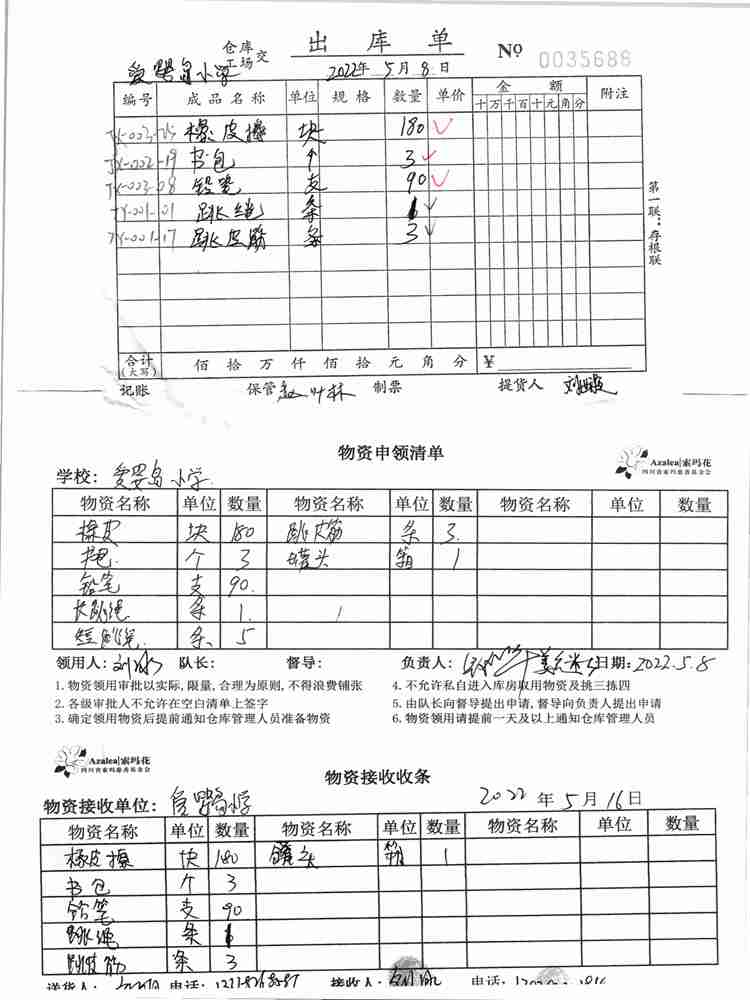 仓库
工场 交 出库单 № 0035686
小学 2022年 5月 8日
编号 成品名称 单位 规格 数量 单价 金额 附注
十万千百十元角分
JY-003-25 橡皮擦 块 180
JY-002-19 书包 个 3
JY-003-08 铅笔 支 90
JY-001-01 跳绳 条
JY-001-17 跳皮筋 条 3
第一联：存根联
合计(大写) 佰 拾 万 仟 佰 拾 元 角 分 ¥
记账 保管 制票 提货人
物资申领清单
Azalea|索玛花
四川省索玛慈善基金会
学校： 爱婴岛小学
物资名称 单位 数量 物资名称 单位 数量 物资名称 单位 数量
橡皮 块 180 跳皮筋 条 3
书包 个 3 罐头 箱 1
铅笔 支 90
长跳绳 条 1
短跳绳 条 5
领用人： 队长： 督导： 负责人： 日期：2022.5.8
1.物资领用审批以实际,限量,合理为原则,不得浪费铺张 4.不允许私自进入库房取用物资及挑三拣四
2.各级审批人不允许在空白清单上签字 5.由队长向督导提出申请,督导向负责人提出申请
3.确定领用物资后提前通知仓库管理人员准备物资 6.物资领用请提前一天及以上通知仓库管理人员
Azalea|索玛花
四川省索玛慈善基金会
物资接收收条
物资接收单位： 小学 2022年5月16日
物资名称 单位 数量 物资名称 单位 数量 物资名称 单位 数量
橡皮擦 块 180 罐头 箱 1
书包 个 3
铅笔 支 90
跳绳 条
跳皮筋 条 3
送货人： 电话： 接收人： 电话：